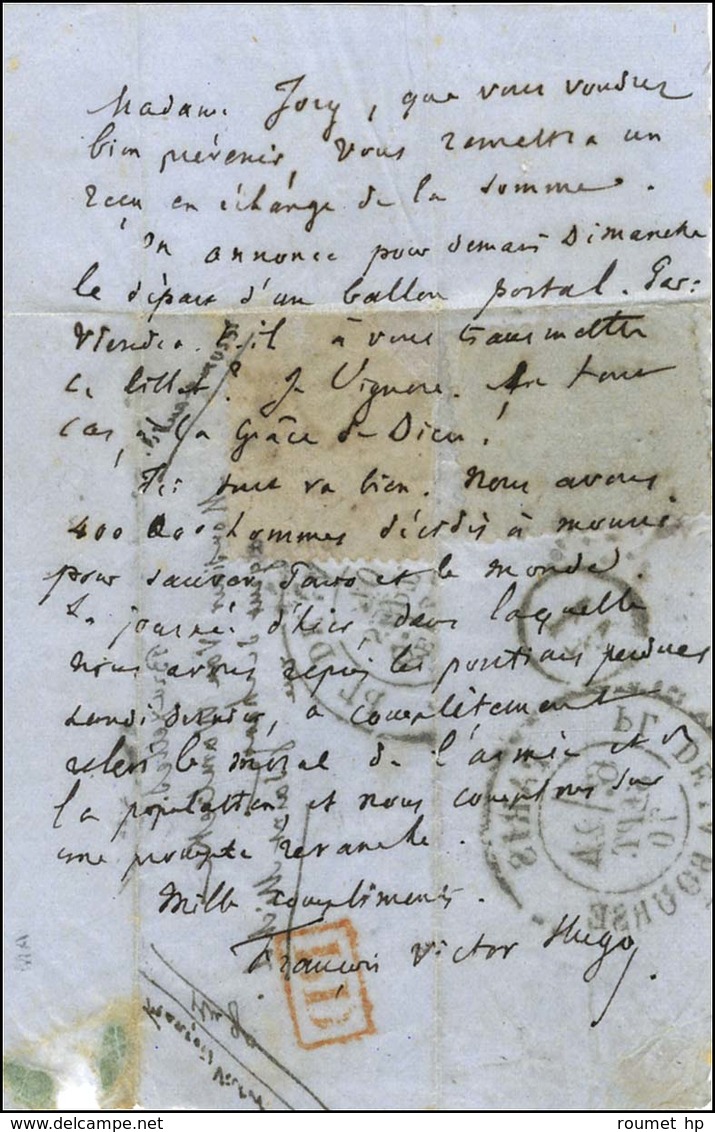 Madame Jory, que vous voudrez
bien prévenir, vous remettra un
reçu en échange de la somme.
On annonce pour demain Dimanche
le départ d'un ballon postal. Par-
viendra-t-il à vous transmettre
ce billet ? Je l'ignore. En tout
cas, à la grâce de Dieu !
Ici tout va bien. Nous avons
400 000 hommes décidés à mourir
pour sauver Paris et le monde.
La journée d'hier dans laquelle
nous avons repris les positions perdues
Lundi dernier, a complètement
relevé le moral de l'armée et de
la population, et nous comptons sur
une prompte revanche.
Mille compliments.
François Victor Hugo
PD
PARIS
PL. DE LA BOURSE
SEPT
70
roumet hp